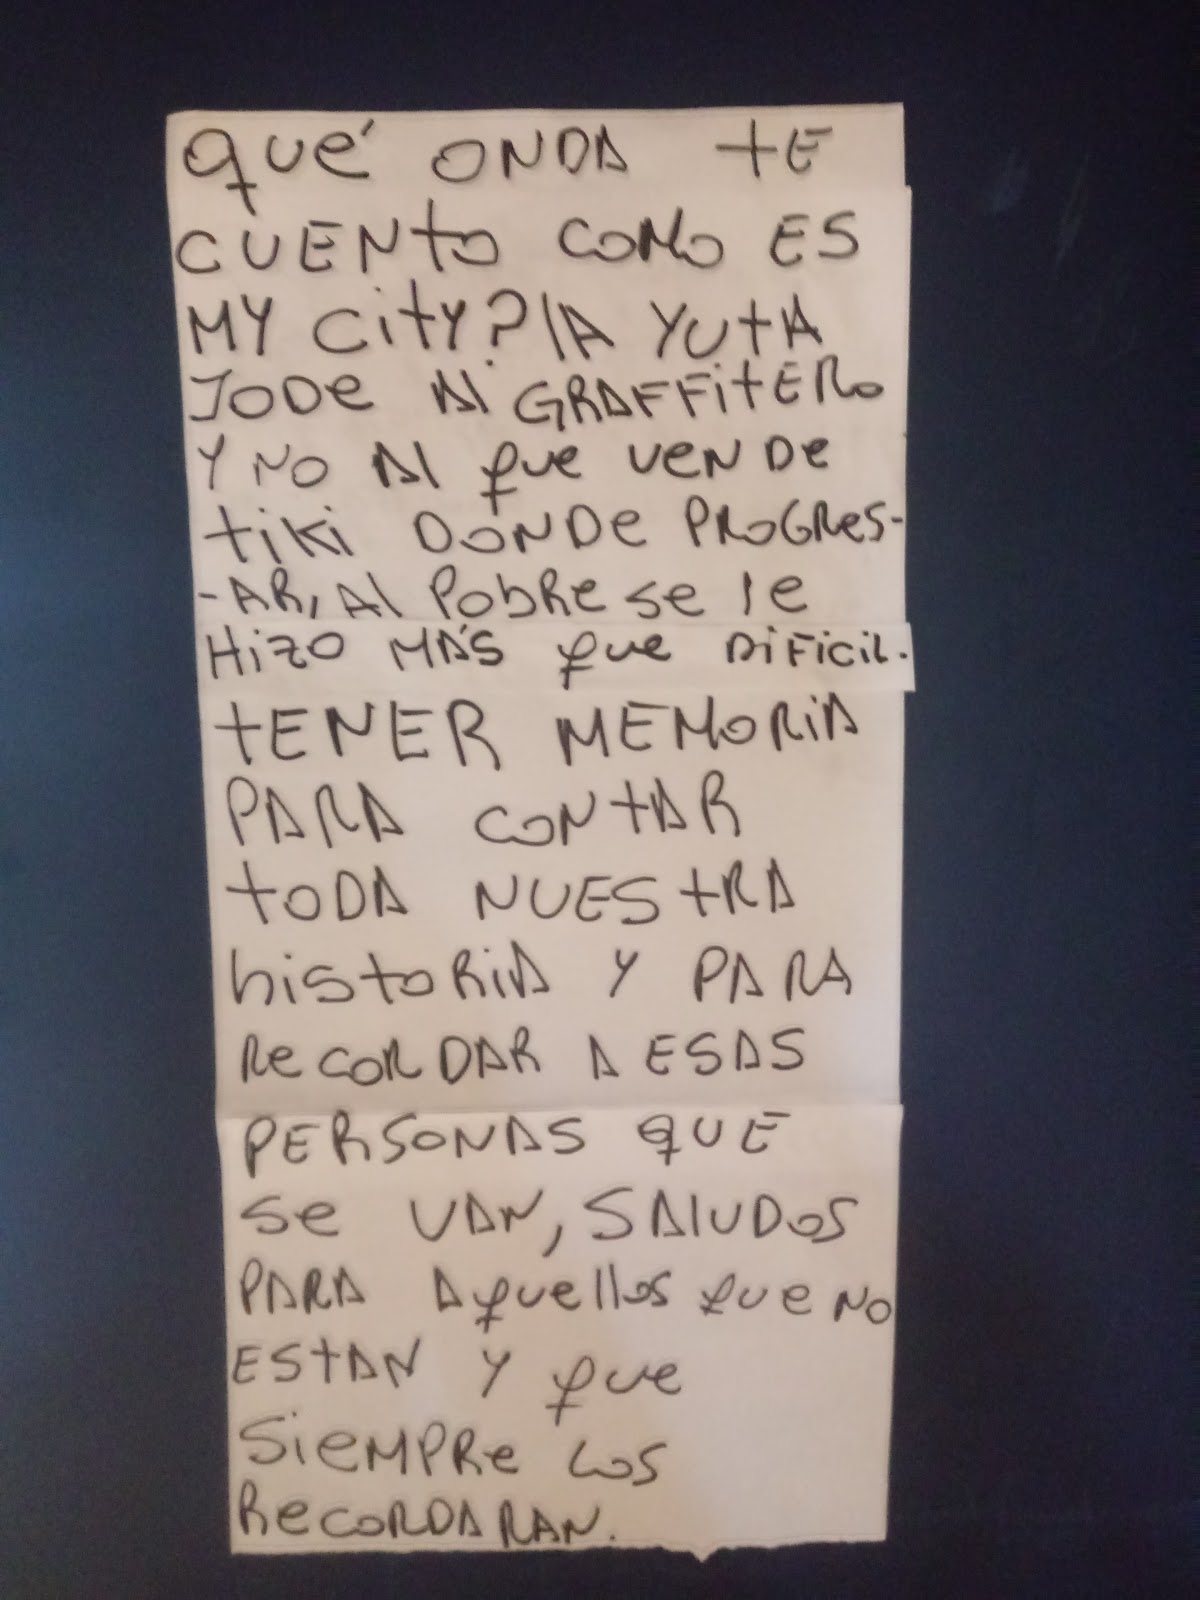 qué ONDA tE
CUENtO COMO ES
MY CitY? lA YUtA
JODe Al GRAFFitERO
Y NO Al que VeNDe
tiKi DONDe PROGRes-
-AR, Al PobRe se le
Hizo MÁS que DiFiciL.
tENER MEMORiA
PARA CONtAR
tODA NUEStRA
histORiA Y PARA
ReCORDAR A ESAS
PERSONAS QUE
Se VAN, SAlUDOS
PARA AquellOS que NO
EStAN Y que
SieMPRe LOS
ReCORDARAN.